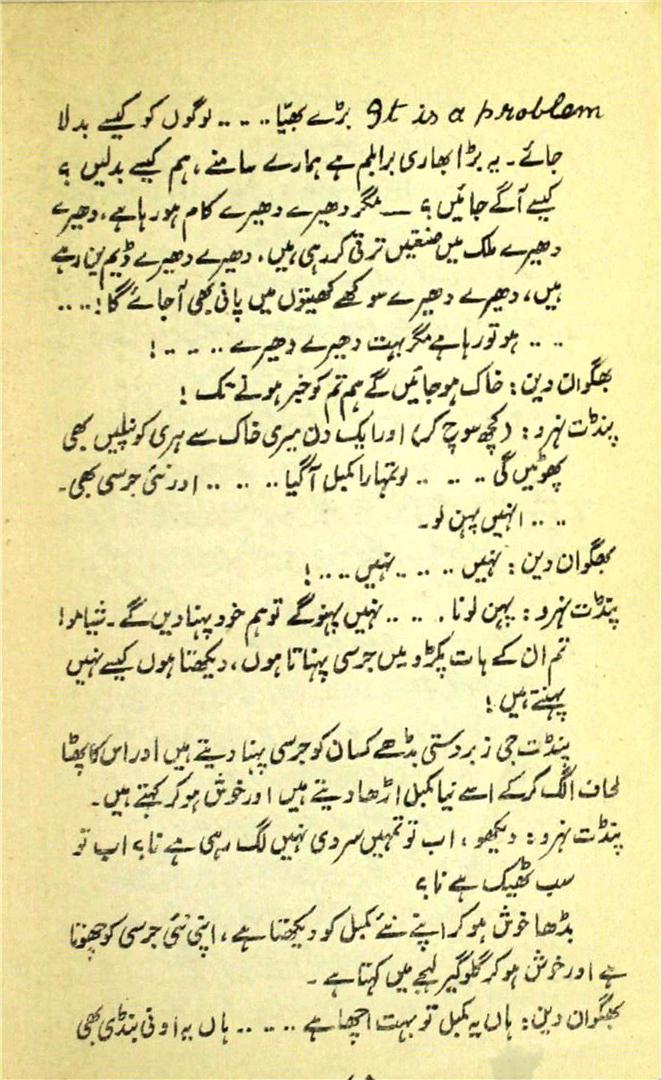 It is a problem بڑے بھیّا .... لوگوں کو کیسے بدلا
جائے۔ یہ بڑا بھاری پرابلم ہے ہمارے سامنے، ہم کیسے بدلیں ؟
کیسے آگے جائیں ؟ — مگر دھیرے دھیرے کام ہو رہا ہے، دھیرے
دھیرے ملک میں صنعتیں ترقی کر رہی ہیں، دھیرے دھیرے ڈیم بن رہے
ہیں، دھیرے دھیرے سوکھے کھیتوں میں پانی بھی آجائے گا! ....
.... ہو تو رہا ہے مگر بہت دھیرے دھیرے .... !
بھگوان دین: خاک ہو جائیں گے ہم تم کو خبر ہونے تک !
پنڈت نہرو: (کچھ سوچ کر) اور ایک دن میری خاک سے ہری کونپلیں بھی
پھوٹیں گی .... لو تمہارا کمبل آگیا .... اور نئی جرسی بھی۔
.... انہیں پہن لو۔
بھگوان دین: نہیں .... نہیں .... !
پنڈت نہرو: پہن لو نا .... نہیں پہنو گے تو ہم خود پہنا دیں گے۔ شیامو!
تم ان کے ہات پکڑو میں جرسی پہناتا ہوں، دیکھتا ہوں کیسے نہیں
پہنتے ہیں !
پنڈت جی زبردستی بڈھے کسان کو جرسی پہنا دیتے ہیں اور اس کا پھٹا
لحاف الگ کر کے اسے نیا کمبل اڑھا دیتے ہیں اور خوش ہو کر کہتے ہیں۔
پنڈت نہرو: دیکھو، اب تو تمہیں سردی نہیں لگ رہی ہے نا؟ اب تو
سب ٹھیک ہے نا؟
بڈھا خوش ہو کر اپنے نئے کمبل کو دیکھتا ہے، اپنی نئی جرسی کو چھوتا
ہے اور خوش ہو کر گلوگیر لہجے میں کہتا ہے۔
بھگوان دین: ہاں یہ کمبل تو بہت اچھا ہے .... ہاں یہ اونی بنڈی بھی